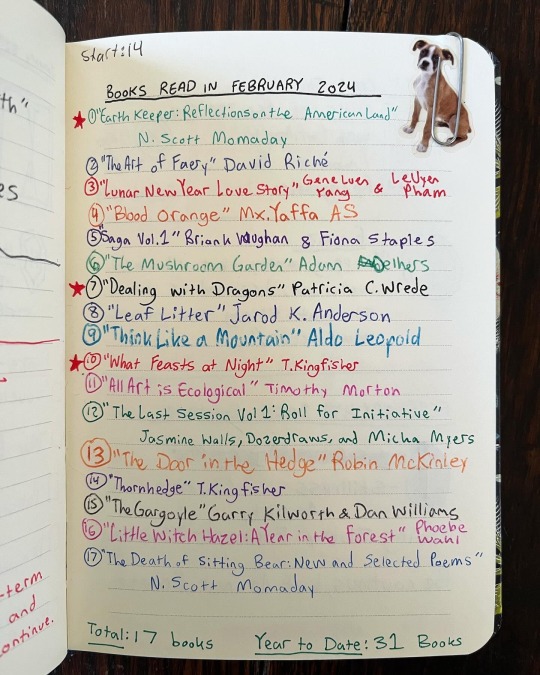 Start:14
BOOKS READ IN FEBRUARY 2024
① "Earth Keeper: Reflections on the American Land"
N. Scott Momaday
② "The Art of Faery" David Riché
③ "Lunar New Year Love Story" Gene Luen Yang & LeUyen Pham
④ "Blood Orange" Mx. Yaffa AS
⑤ "Saga Vol. 1" Brian K Vaughan & Fiona Staples
⑥ "The Mushroom Garden" Adam Oelhers
⑦ "Dealing with Dragons" Patricia C. Wrede
⑧ "Leaf Litter" Jarod K. Anderson
⑨ "Think Like a Mountain" Aldo Leopold
⑩ "What Feasts at Night" T. Kingfisher
⑪ "All Art is Ecological" Timothy Morton
⑫ "The Last Session Vol 1: Roll for Initiative"
Jasmine Walls, Dozerdraws, and Micha Myers
⑬ "The Door in the Hedge" Robin McKinley
⑭ "Thornhedge" T. Kingfisher
⑮ "The Gargoyle" Garry Kilworth & Dan Williams
⑯ "Little Witch Hazel: A Year in the Forest" Phoebe Wahl
⑰ "The Death of Sitting Bear: New and Selected Poems"
N. Scott Momaday
Total: 17 books Year to Date: 31 Books
th"
es
-term
and
continue.